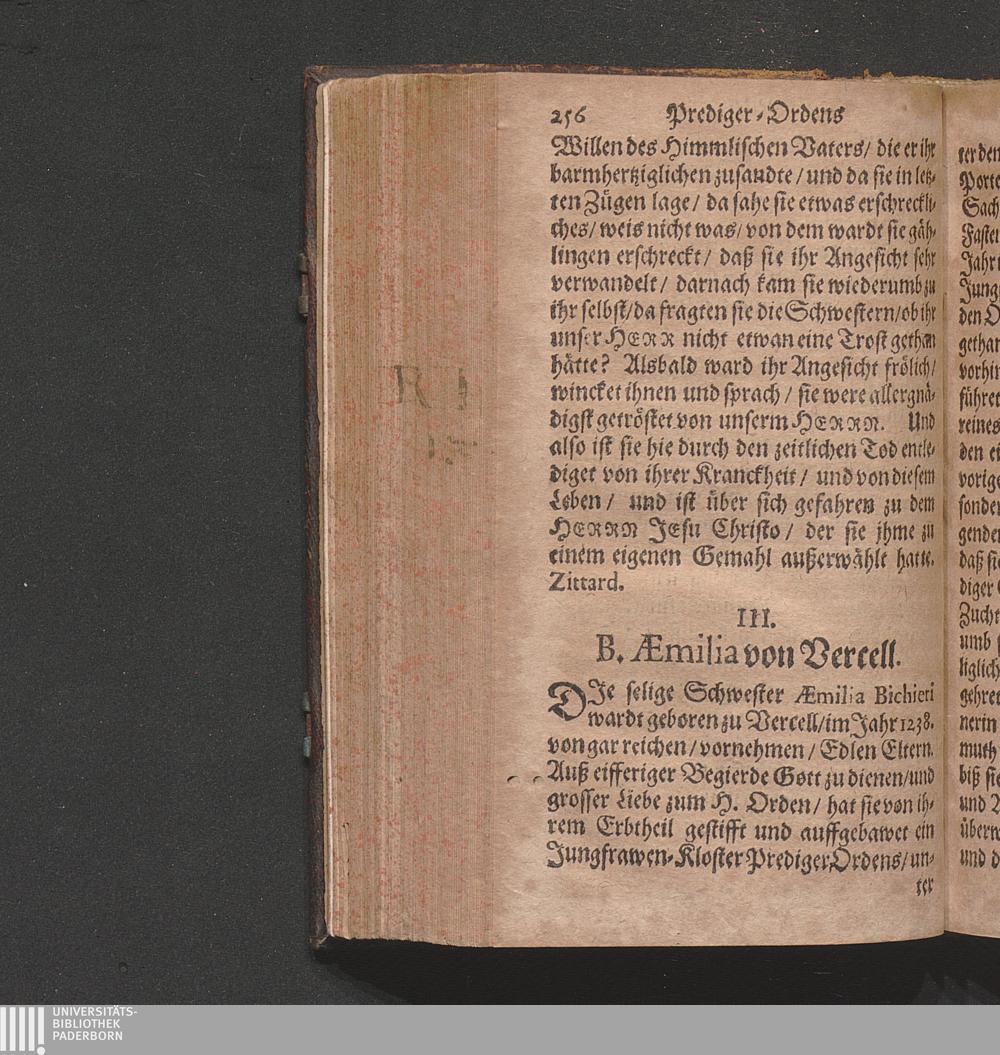 256 Prediger-Ordens
Willen des Himmlischen Vaters/ die er ihr
barmhertziglichen zusandte/ und da sie in letz-
ten Zügen lage/ da sahe sie etwas erschreckli-
ches/ weis nicht was/ von dem wardt sie gäh-
lingen erschreckt/ daß sie ihr Angesicht sehr
verwandelt/ darnach kam sie wiederumb zu
ihr selbst/ da fragten sie die Schwestern/ ob ihr
unser HERR nicht etwan eine Trost gethan
hätte? Alsbald ward ihr Angesicht frölich/
wincket ihnen und sprach/ sie were allergnä-
digst getröstet von unserm HERRN. Und
also ist sie hie durch den zeitlichen Tod entle-
diget von ihrer Kranckheit/ und von diesem
Leben/ und ist über sich gefahren zu dem
HERRN JEsu Christo/ der sie jhme zu
einem eigenen Gemahl außerwählt hatte.
Zittard.
III.
B. Æmilia von Vercell.
DJe selige Schwester Æmilia Bichieri
wardt geboren zu Vercell/ im Jahr 1238.
von gar reichen/ vornehmen/ Edlen Eltern.
Auß eifferiger Begierde Gott zu dienen/ und
grosser Liebe zum H. Orden/ hat sie von ih-
rem Erbtheil gestifft und auffgebawet ein
Jungfrawen-Kloster Prediger Ordens/ un-
ter
ter den
Porte
Sach
Faste
Jahr
Jung
den O
gethan
vorhin
führet
reines
den
vorige
sonder
gende
daß si
diger
Zucht
umb
liglich
gehre
nerin
muth
biß sie
und
überw
und d
UNIVERSITÄTS-
BIBLIOTHEK
PADERBORN